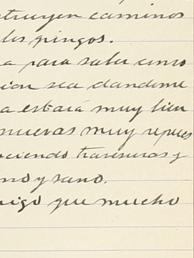 struyen caminos
los pingos.
a para saber como
cion sea dandome
a estará muy bien
nuevas muy
ciendo travesuras y
no y sano.
migo que mucho